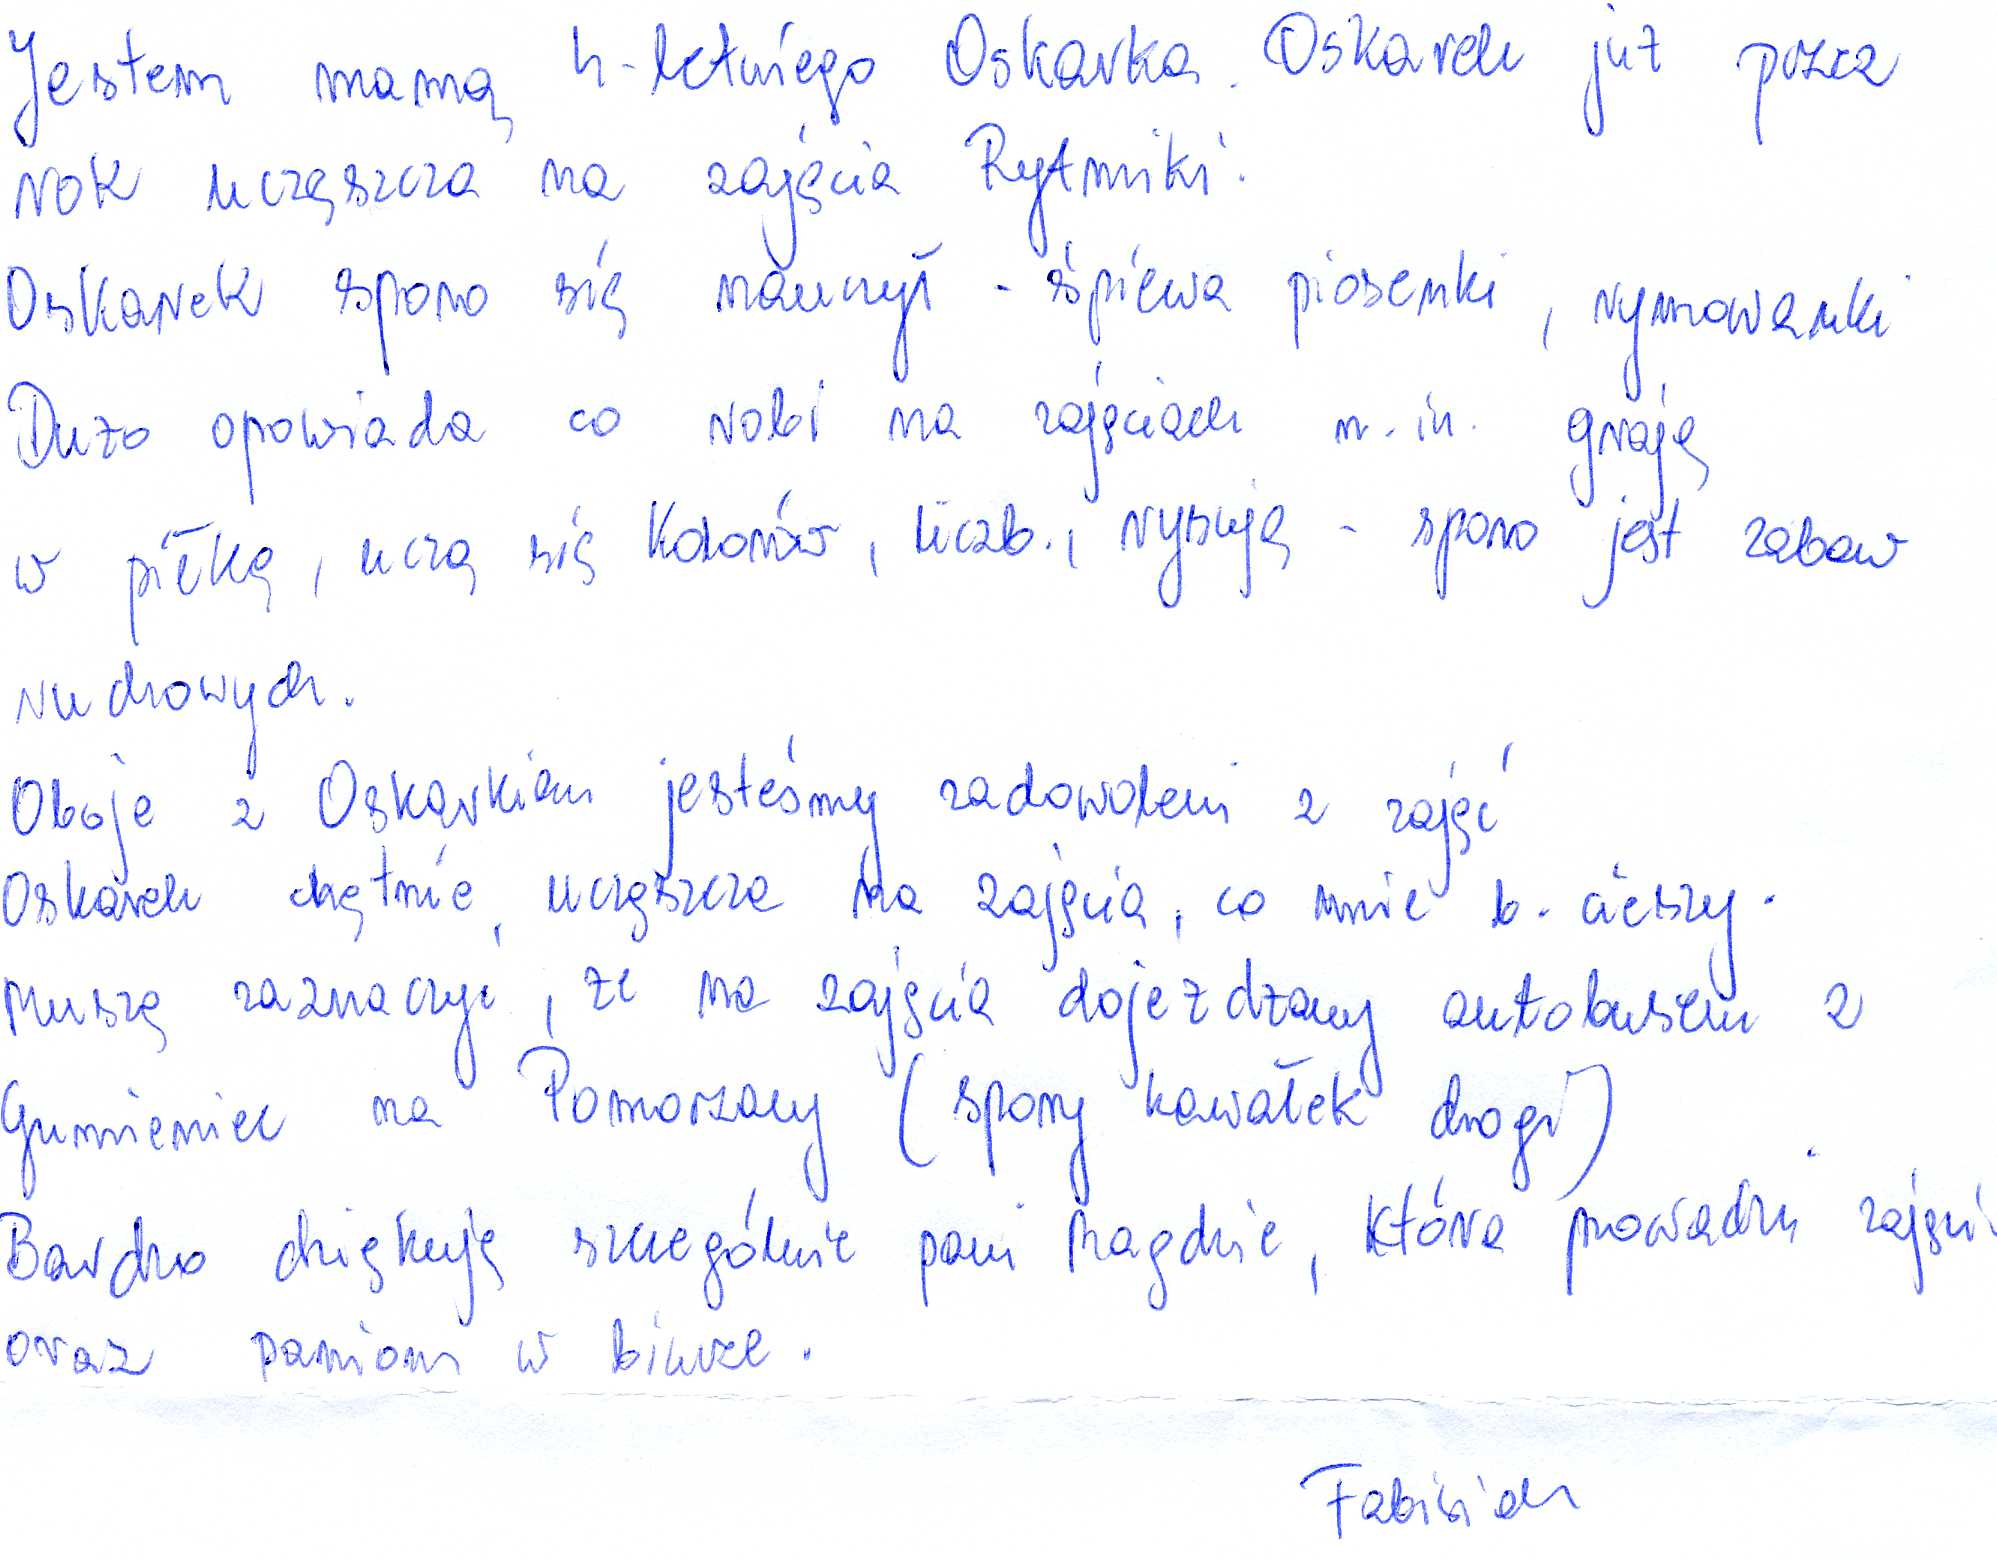 Jestem mamą 4-letniego Oskarka. Oskarek już przez
rok uczęszcza na zajęcia Rytmiki.
Oskarek sporo się nauczył - śpiewa piosenki, rymowanki
Dużo opowiada co robi na zajęciach m.in. grają
w piłkę, uczą się kolorów, liczb., rysują - sporo jest zabaw
ruchowych.
Oboje z Oskarkiem jesteśmy zadowoleni z zajęć
Oskarek chętnie, uczęszcza na zajęcia, co mnie b. cieszy.
Muszę zaznaczyć, że na zajęcia dojeżdżamy autobusem z
Gumieniec na Pomorzany (spory kawałek drogi)
Bardzo dziękuję szczególnie pani Magdzie, która prowadzi zajęcia
oraz paniom w biurze.
Fabisiak